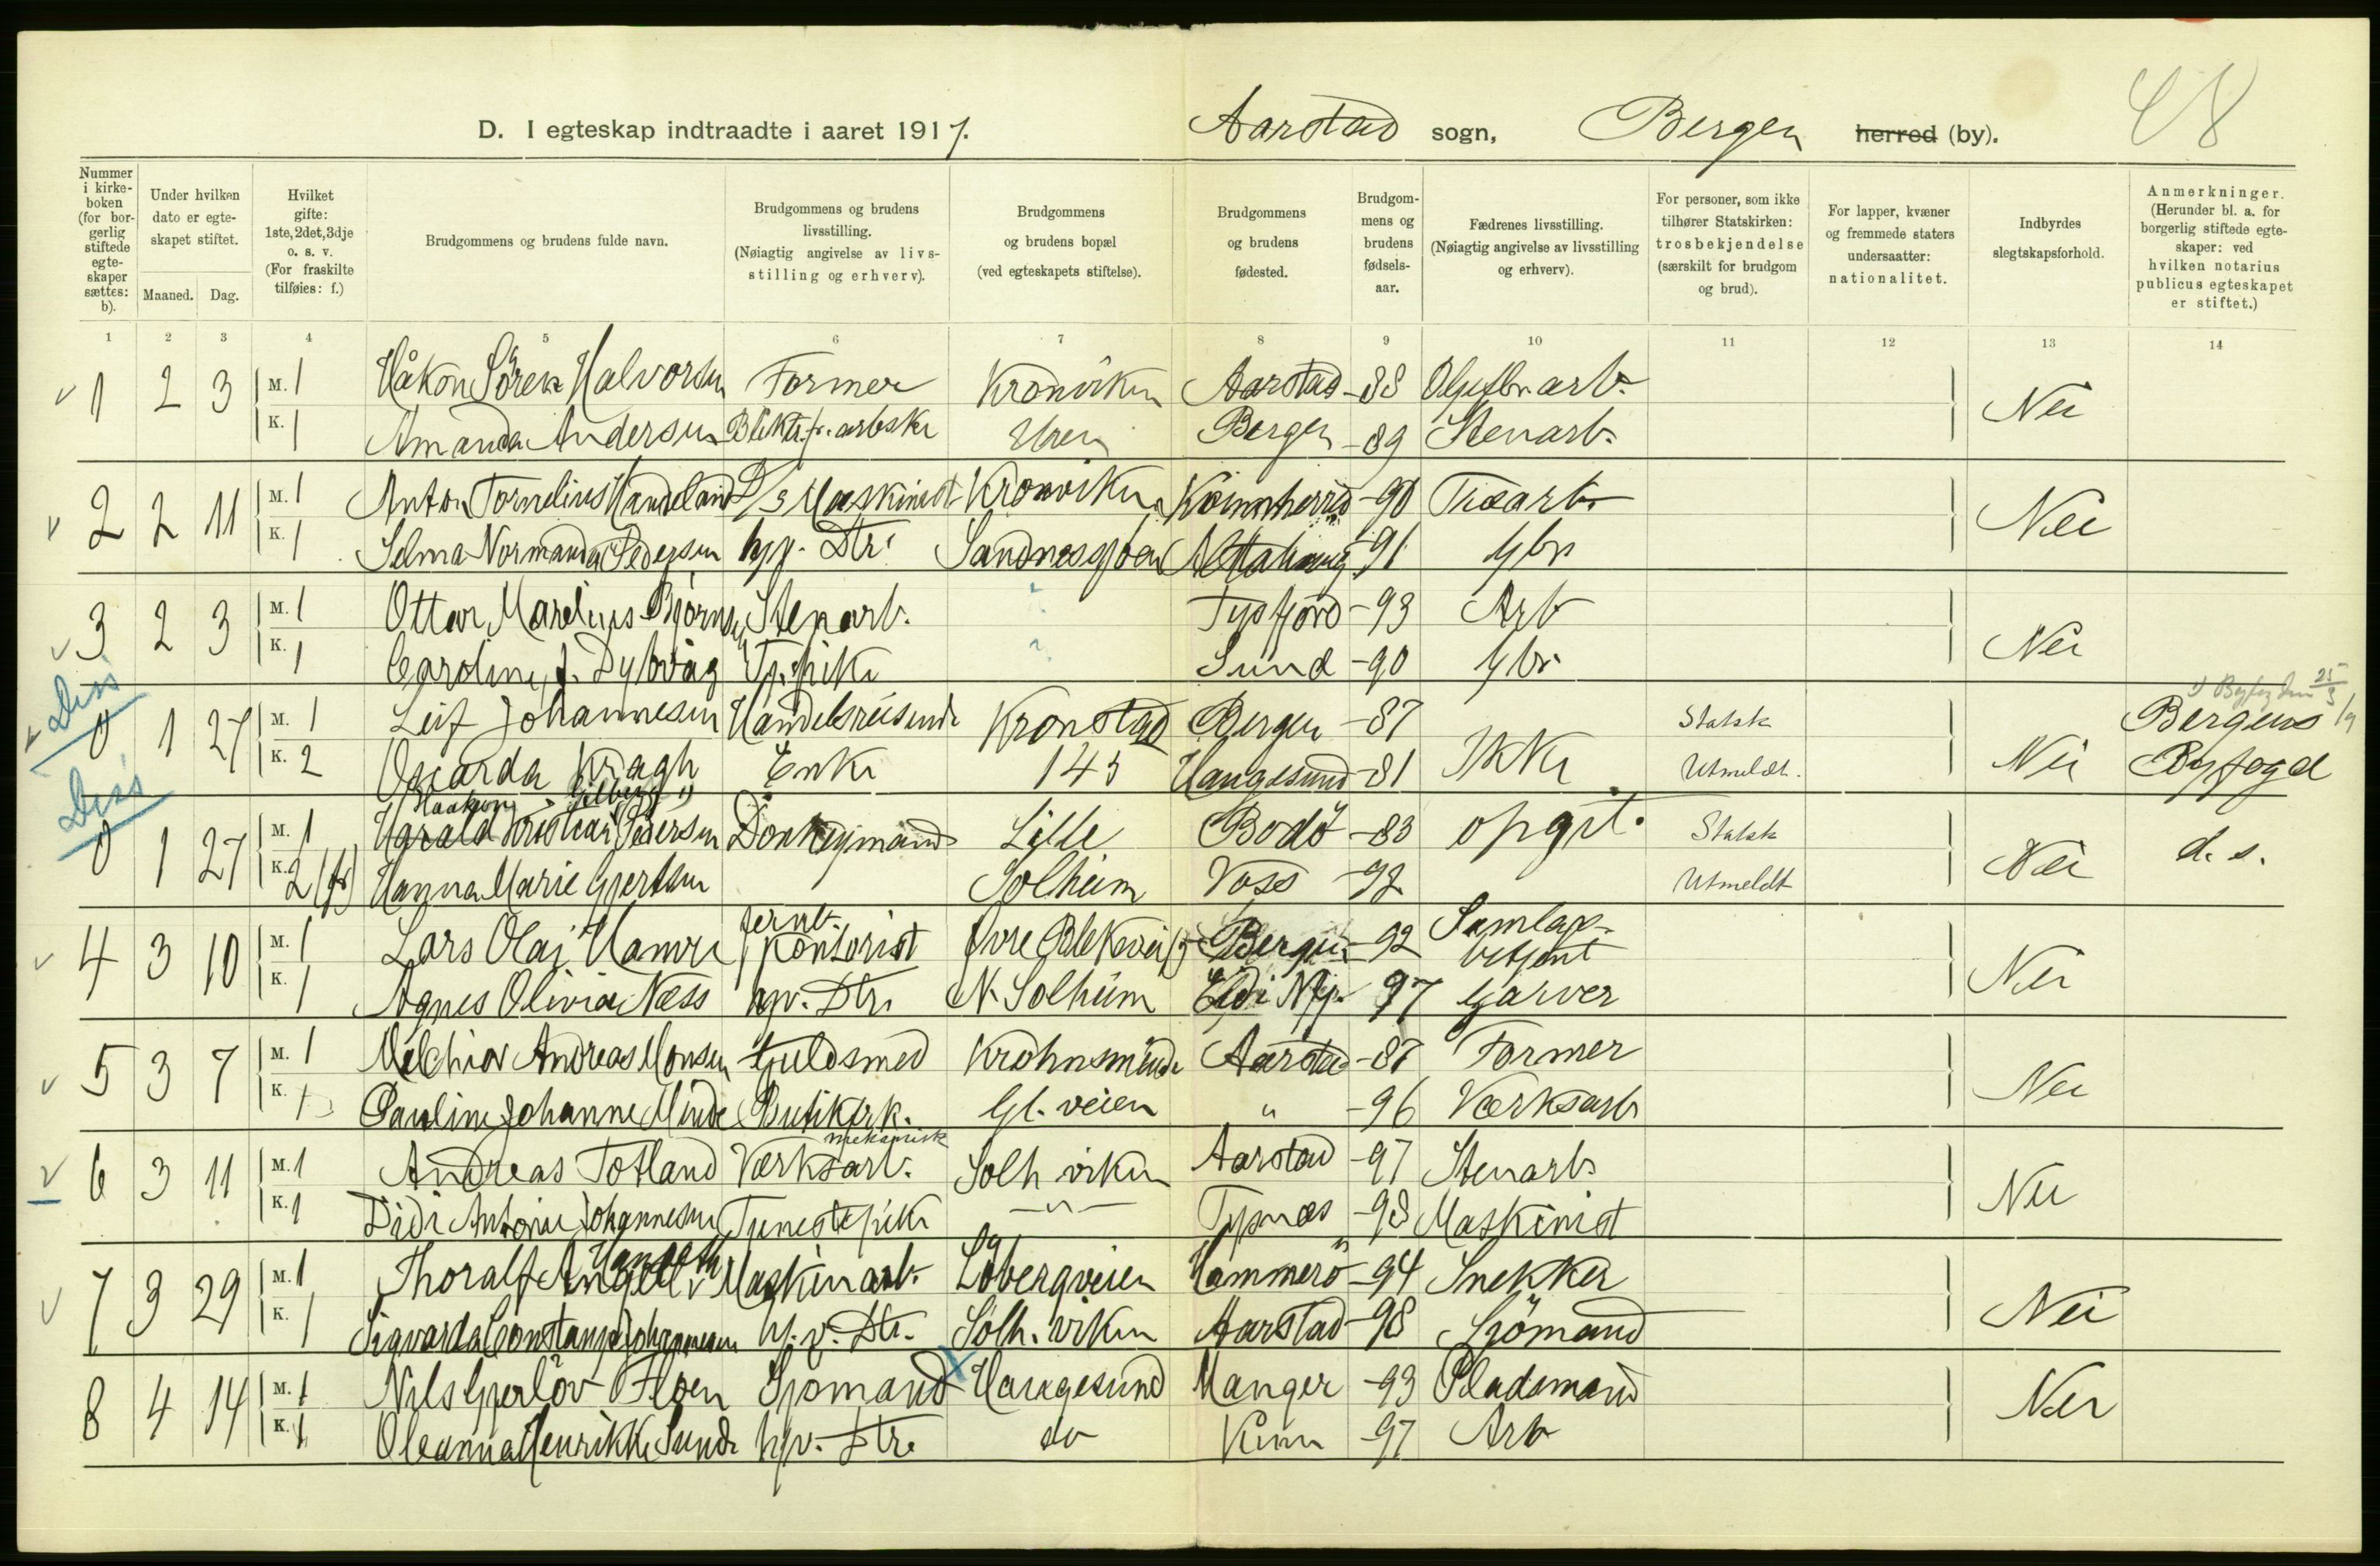 D. I egteskap indtraadte i aaret 1917. Aarstad sogn, Bergen herred (by). 48
Nummer i kirkeboken (for borgerlig stiftede egteskaper sættes: b).
Under hvilken dato er egteskapet stiftet.
Maaned. Dag.
Hvilket gifte: 1ste, 2det, 3dje o. s. v. (For fraskilte tilføies: f.)
Brudgommens og brudens fulde navn.
Brudgommens og brudens livsstilling. (Nøiagtig angivelse av livsstilling og erhverv).
Brudgommens og brudens bopæl (ved egteskapets stiftelse).
Brudgommens og brudens fødested.
Brudgommens og brudens fødselsaar.
Fædrenes livsstilling. (Nøiagtig angivelse av livsstilling og erhverv).
For personer, som ikke tilhører Statskirken: trosbekjendelse (særskilt for brudgom og brud).
For lapper, kvæner og fremmede staters undersaatter: nationalitet.
Indbyrdes slegtskapsforhold.
Anmerkninger. (Herunder bl. a. for borgerlig stiftede egteskaper: ved hvilken notarius publicus egteskapet er stiftet.)
1 2 3 4 5 6 7 8 9 10 11 12 13 14
1 2 3 M. 1 Håkon Sören Halvorsen Former Kronviken Aarstad -88 arb.
K. 1 Amanda Andersen arbske Uren Bergen -89 Stenarb. Nei
2 2 11 M. 1 Anton Tornelius Handeland D/S Maskinist Kronviken -90
K. 1 Selma Normanda Pedersen hgv. Dtr. Sandnessjøen Alstahaug -91 Gbr Nei
3 2 3 M. 1 Ottar Marelius Björnsen Stenarb. ? Tysfjord -93 Arb
K. 1 Caroline J. Dybvåg Tj.pike ? Sund -90 Gbr. Nei
Diss
0 1 27 M. 1 Leif Johannesen Handelsreisende Kronstad Bergen -87 Statsk Bergens
K. 2 Osearda Kragh Enke 143 Haugesund -81 Ikke Utmeldt. Nei Byfogd
Diss
Haakon
0 1 27 M. 1 Harald Kristian Pedersen Donkeymand Lille Bodö -83 opgit. Statsk
K. 2 (fr) Hanna Marie Gjertsen Solheim Voss -92 Utmeldt Nei d. s.
Jernb.
4 3 10 M. 1 Lars Olai Hamre Kontorist Øvre Blekevei Bergen -92 Samlag-
betjent
K. 1 Agnes Olivia Næss hgv. Dtr. N. Solheim 97 Garver Nei
5 3 7 M. 1 Melchior Andreas Monsen Guldsmed Krohnsminde Aarstad -87 Former
K. 1 Pauline Johanne Minde Butikerk. Gl. veien " -96 Værksarb Nei
mekanisk
6 3 11 M. 1 Andreas Totland Værksarb. Solh viken Aarstad -97 Stenarb.
K. 1 Didi Antonie Johannesen Tjenestepike -"- Tysnæs -98 Maskinist Nei
7 3 29 M. 1 Thoralf Angell Maskinarb. Løbergveien Hammerö -94 Snekker
K. 1 Sigvarda Constanse Johannesen h. v. Dtr. Solh. viken Aarstad -98 Sjömand Nei
8 4 14 M. 1 Nils Gjerlöv Floen Sjömand Haugesund Manger -93 Pladsmand
K. 1 Oleanna Henrikke Sunde hgv. Dtr. do Kinn -97 Arb Nei